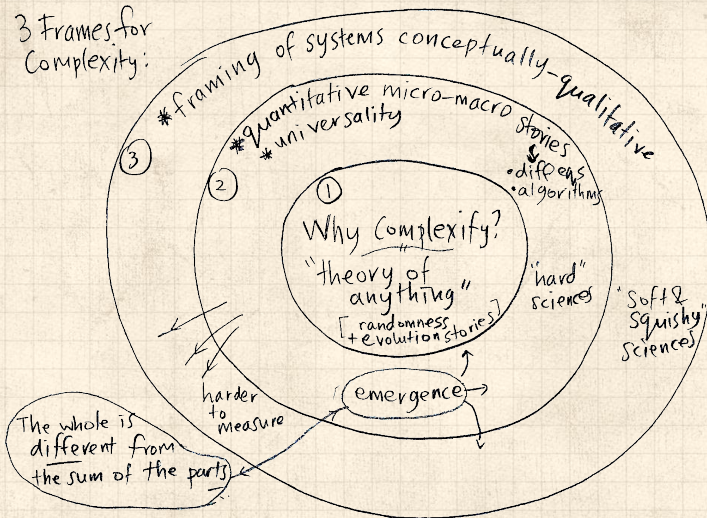 3 Frames for
Complexity:
* framing of systems conceptually-qualitative
* quantitative micro-macro stories
* universality
• diff eqs
• algorithms
3
2
1
Why Complexify?
"theory of
anything"
[randomness
+ evolution stories]
"hard"
sciences
"soft &
squishy"
sciences
harder
to
measure
emergence
The whole is
different from
the sum of the parts